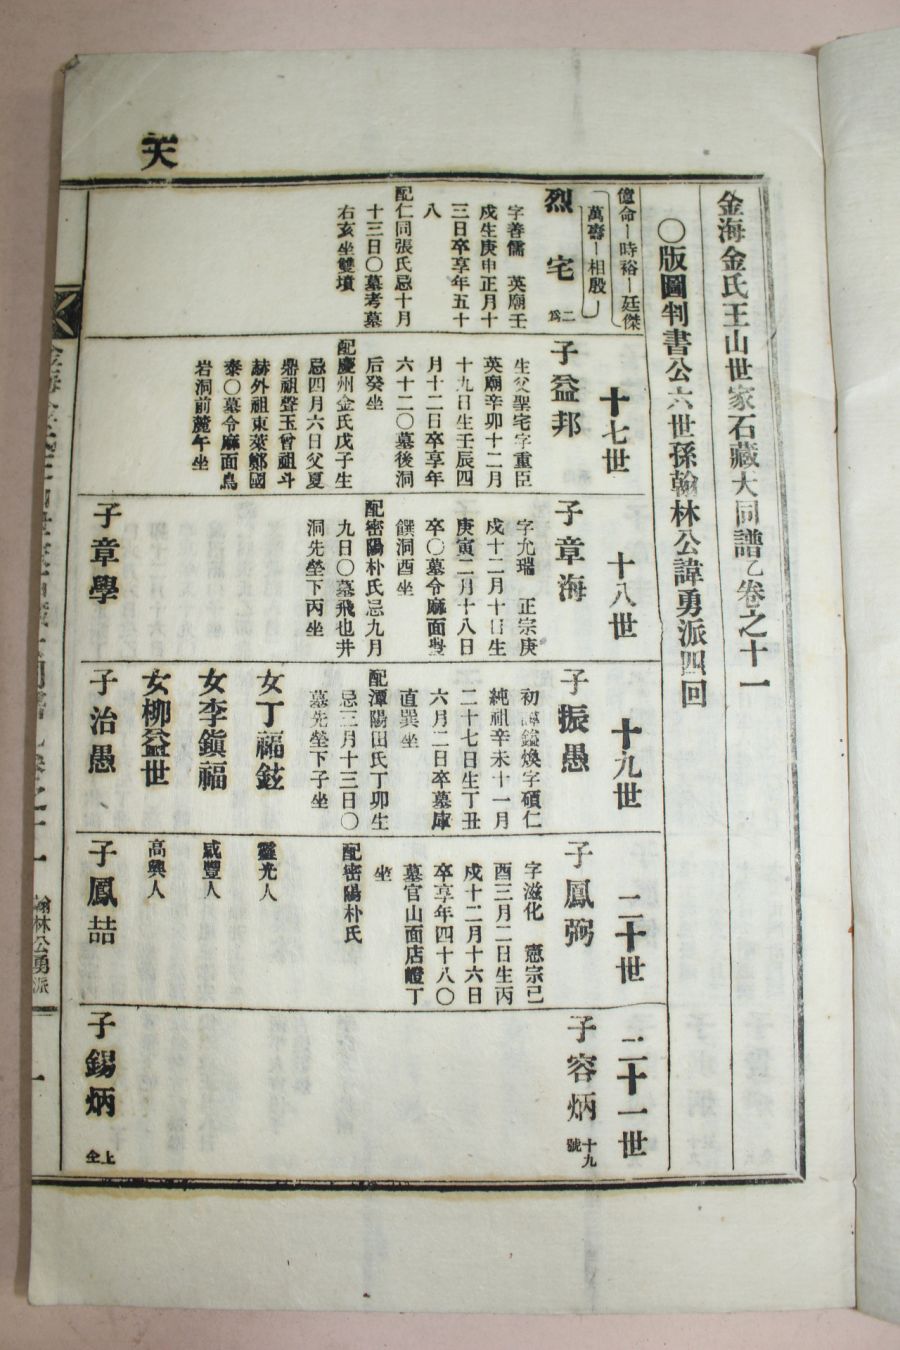 天
金海金氏王山世家石藏大同譜乙卷之十一
〇版圖判書公六世孫翰林公諱勇派四回
億命─時裕─廷傑
萬壽─相殷
二爲
烈宅
字善儒 英廟壬
戌生庚申正月十
三日卒享年五十
八
配仁同張氏忌十月
十三日〇墓考墓
右亥坐雙墳
十七世
子益邦
生父聖宅字重臣
英廟辛卯十二月
十九日生壬辰四
月十二日卒享年
六十二〇墓後洞
后癸坐
配慶州金氏戊子生
忌四月六日父夏
鼎祖聲玉曾祖斗
赫外祖東萊鄭國
泰〇墓令麻面鳥
岩洞前麓午坐
十八世
子章海
字允瑞 正宗庚
戌十二月十日生
庚寅二月十八日
卒〇墓令麻面
饌洞酉坐
配密陽朴氏忌九月
九日〇墓飛也井
洞先塋下丙坐
子章學
十九世
子振愚
初諱鎰煥字碩仁
純祖辛未十一月
二十七日生丁丑
六月二日卒墓庫
直巽坐
配潭陽田氏丁卯生
忌三月十三日〇
墓先塋下子坐
女丁福鉉
女李鎭福
女柳益世
子治愚
二十世
子鳳弼
字滋化 憲宗己
酉三月二日生丙
戌十二月十六日
卒享年四十八〇
墓官山面店嶝丁
坐
配密陽朴氏
靈光人
咸豐人
高興人
子鳳喆
二十一世
子容炳
十九號
子錫炳
上仝
翰林公勇派
一